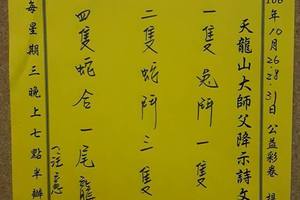 106年10月26.28.31日公益彩卷
天龍山大師父降示詩文
一隻兔鬥一隻
二隻蛇鬥三隻
四隻蛇合一尾龍
(注意
每星期三晚上七點半辦